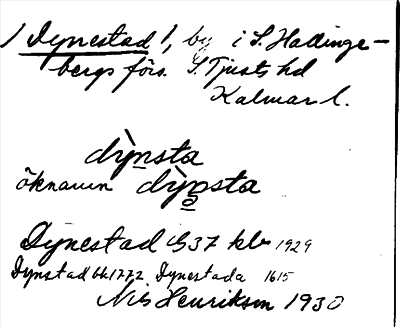 / Dynestad /, by i S. Hallinge-
bergs förs. S. Tjusts hd
Kalmar l.
dỳnsta
öknamn dỳnsta
Dynestad G37 kb 1929
Dynstad 1772 Dynestada 1615
Nils Henrikson 1930